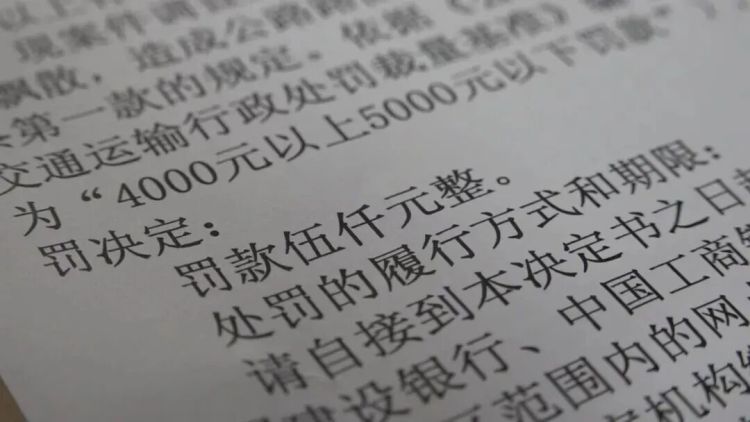 现案件调
飘散，造成公路路
第一款的规定。依据《
交通运输行政处罚裁量基准》
为“4000元以上5000元以下罚款”
罚决定：
罚款伍仟元整。
处罚的履行方式和期限：
请自接到本决定书之日
建设银行、中国工商
范围内的网
机构